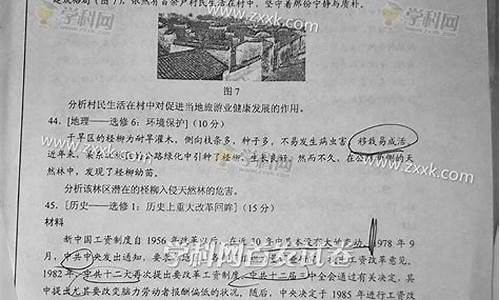 建成格局(图7),依然有百余户村民生活在村中,坚守着那份宁静与质朴。
图7
分析村民生活在村中对促进当地旅游业健康发展的作用。
44. [地理——选修6:环境保护](10分)
干旱区的柽柳为耐旱灌木,侧向枝条多,种子多,不易发生病虫害,移栽易成活。
近年来,某 公路绿化中引种了柽柳,生长良好。然而不久,在公路 侧的天
然林中,发现了柽柳幼苗。
分析该林区潜在的柽柳入侵天然林的危害。
45. [历史——选修1:历史上重大改革回眸](15分)
材料
新中国工资制度自1956年改革以后,在近30年中基本没有大的变动。1978年9
月,中共中央发出通知,要 工资改革意见。
1982年,中共十二大再次提出要改革工资制度,中共十二届三中全会通过有关决定,其
中提出尤其要改变脑力劳动者报酬偏低的状况。随后,中央决定于1985年进行工资改
学科网
www.zxxk.com
学科网
www.zxxk.com
www.zxxk.com
学科网
www.zxxk.com
学科网首发试卷